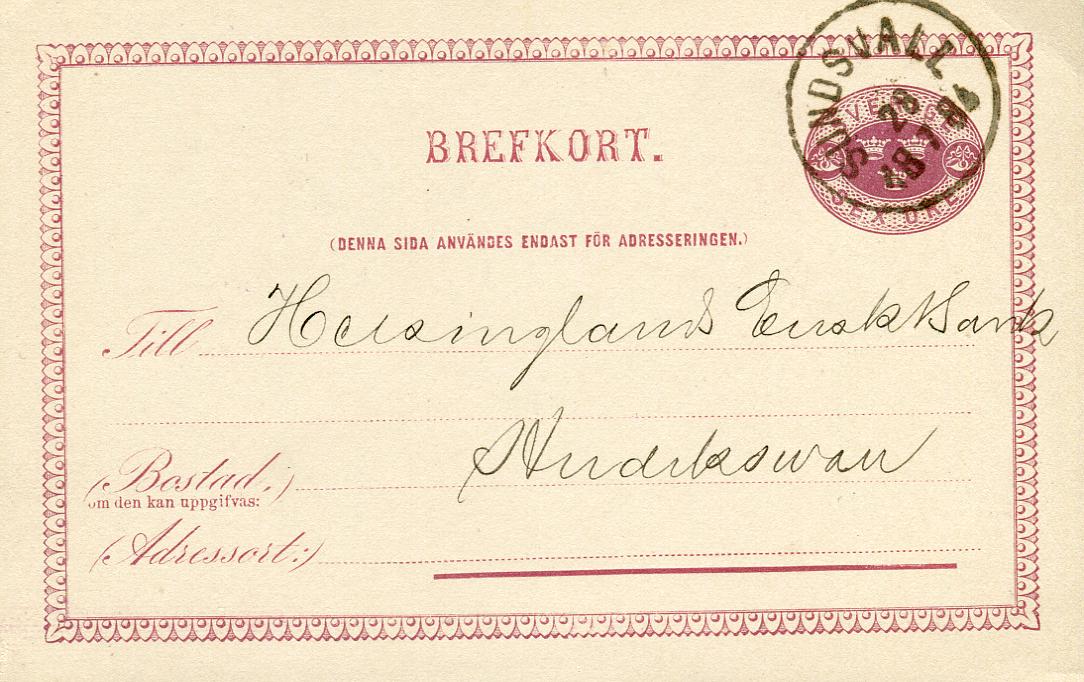 SUNDSVALL
28
187
SVERIGE
SEX ÖRE
BREFKORT.
(DENNA SIDA ANVÄNDES ENDAST FÖR ADRESSERINGEN.)
Till Helsinglands Ensk Bank
Hudikswall
(Bostad:)
om den kan uppgifvas:
(Adressort:)